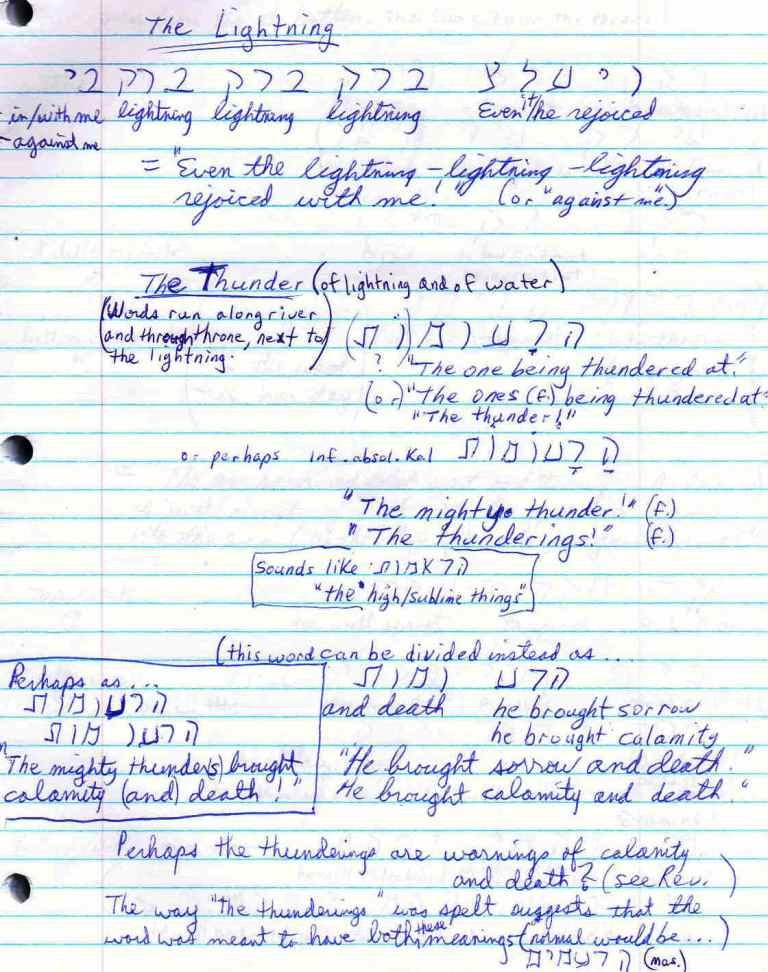 The Lightning
ויעלצ ברק ברק ברק בי
- in/with me lightning lightning lightning Even it/he rejoiced
- against me
= "Even the lightning - lightning - lightning
rejoiced with me!" (or "against me".)
The Thunder (of lightning and of water)
(Words run along river
and through throne, next to
the lightning.)
הרעומ(ות)
? "The one being thundered at."
(or) "The ones (f.) being thundered at."
"The thunder!"
or perhaps inf. absol. Kal הרעומות
"The mighty thunder!" (f.)
"The thunderings!" (f.)
Sounds like: הראמות
"the "high/sublime things"
(this word can be divided instead as ...
הרע ומות
and death he brought sorrow
he brought calamity
"He brought sorrow and death."
He brought calamity and death."
Perhaps as ...
הרעומות
הרעו מות
"The mighty thunder(s) brought
calamity (and) death!"
Perhaps the thunderings are warnings of calamity
and death? (see Rev. )
The way "the thunderings" was spelt suggests that the
word was meant to have both these meanings (normal would be ...)
הרעמים (mas.)